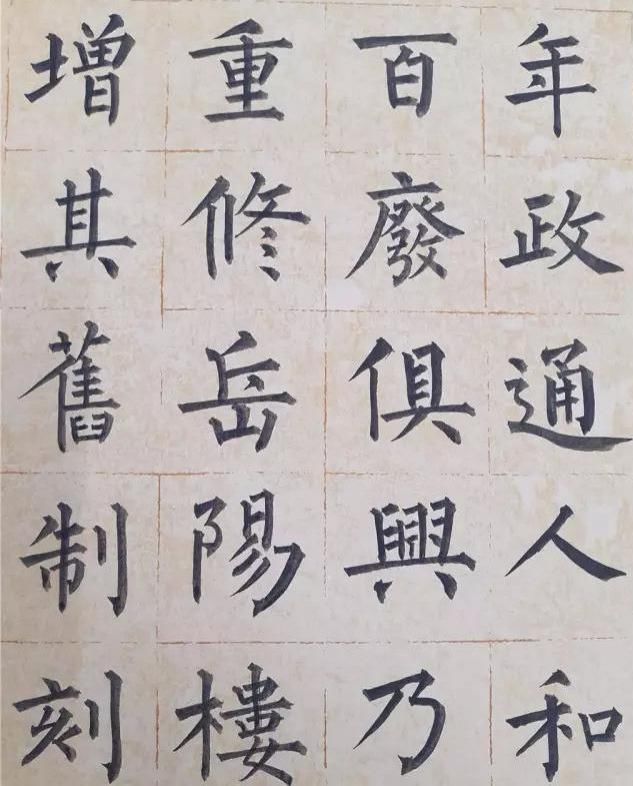 年政通人和
百廢俱興乃
重修岳陽樓
增其舊制刻